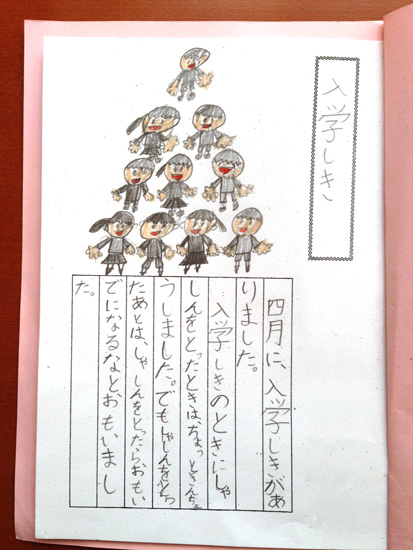 入学しき
四月に、入学しきがあ
りました。
入学しきのときにしゃ
しんをとったときは、ちょっときんちょ
うしました。でもしゃしんをとっ
たあとは、しゃしんをとったらおもい
でになるなとおもいまし
た。